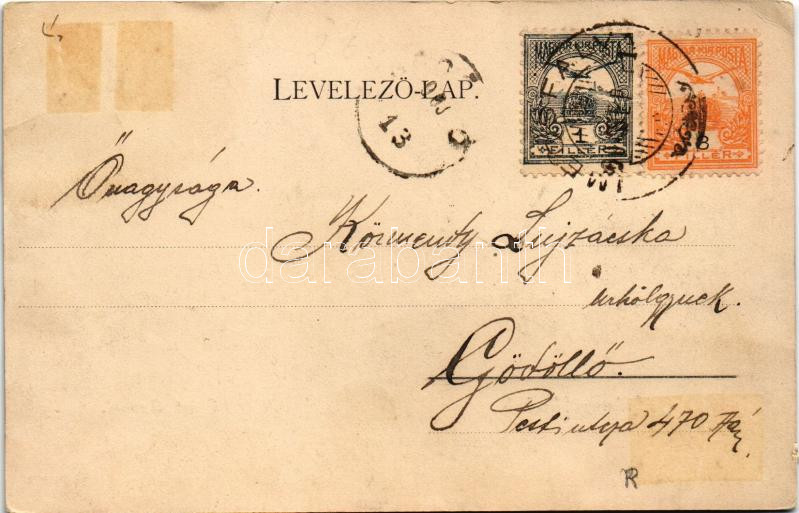 LEVELEZŐ-LAP.
MAGYAR KIR. POSTA
1
FILLÉR
MAGYAR KIR. POSTA
3
FILLÉR
13
Őnagysága.
Körmendy Lujzácska
darabanth
úrhölgynek.
Gödöllő.
Pesti utcza 470 ház.
R